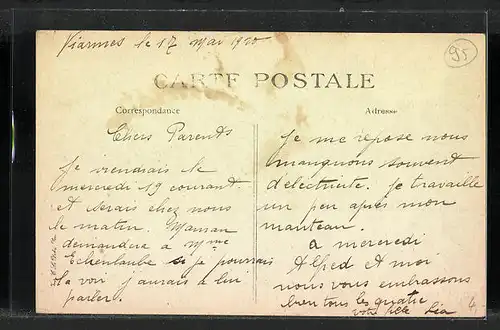 Viarmes le 17 mai 1920
95
CARTE POSTALE
Correspondance
Adresse
Chers Parents
Je viendrais le
mercredi 19 courant
et serais chez nous
le matin. Maman
demandera a Mme
si je pourrais
la voir j'aurais a lui
parler.
Je me repose nous
manquons souvent
d'électricité. Je travaille
un peu après mon
manteau.
a mercredi
Alfred et moi
nous vous embrassons
bien tous les quatre
votre fille Léa